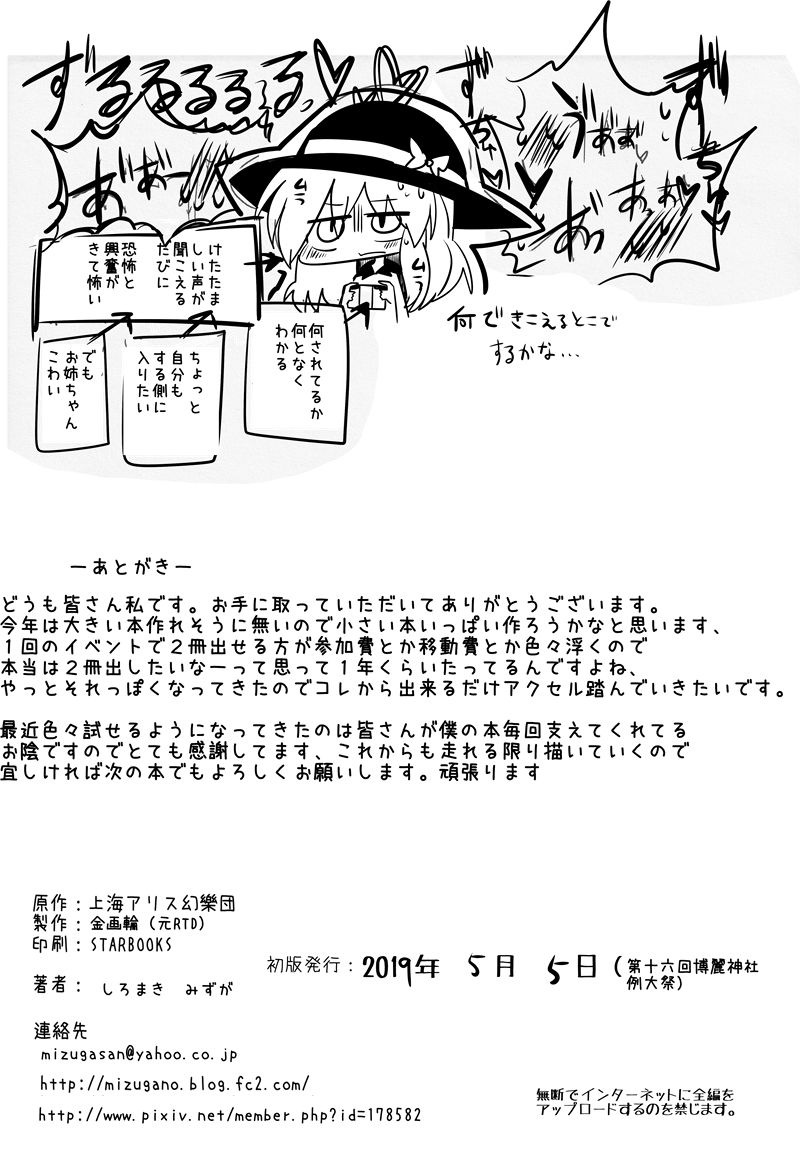 ずるるるるる
ず
ちゅ
うあぁ
ず
ちゅ
あぁぁ
あ゛ぁ
あ゛あ゛ーっ
ムラ
ムラ
けたたま
しい声が
聞こえる
たびに
恐怖と
興奮が
きて怖い
何されてるか
何となく
わかる
ちょっと
自分も
する側に
入りたい
でも
お姉ちゃん
こわい
何できこえるとこで
するかな…
ーあとがきー
どうも皆さん私です。お手に取っていただいてありがとうございます。
今年は大きい本作れそうに無いので小さい本いっぱい作ろうかなと思います、
１回のイベントで２冊出せる方が参加費とか移動費とか色々浮くので
本当は２冊出したいなーって思って１年くらいたってるんですよね、
やっとそれっぽくなってきたのでコレから出来るだけアクセル踏んでいきたいです。
最近色々試せるようになってきたのは皆さんが僕の本毎回支えてくれてる
お陰ですのでとても感謝してます、これからも走れる限り描いていくので
宜しければ次の本でもよろしくお願いします。頑張ります
原作：上海アリス幻樂団
製作：金画輪（元RTD）
印刷：STARBOOKS
初版発行：2019年 5月 5日（第十六回博麗神社
例大祭）
著者： しろまき みずが
連絡先
mizugasan@yahoo.co.jp
http://mizugano.blog.fc2.com/
http://www.pixiv.net/member.php?id=178582
無断でインターネットに全編を
アップロードするのを禁じます。